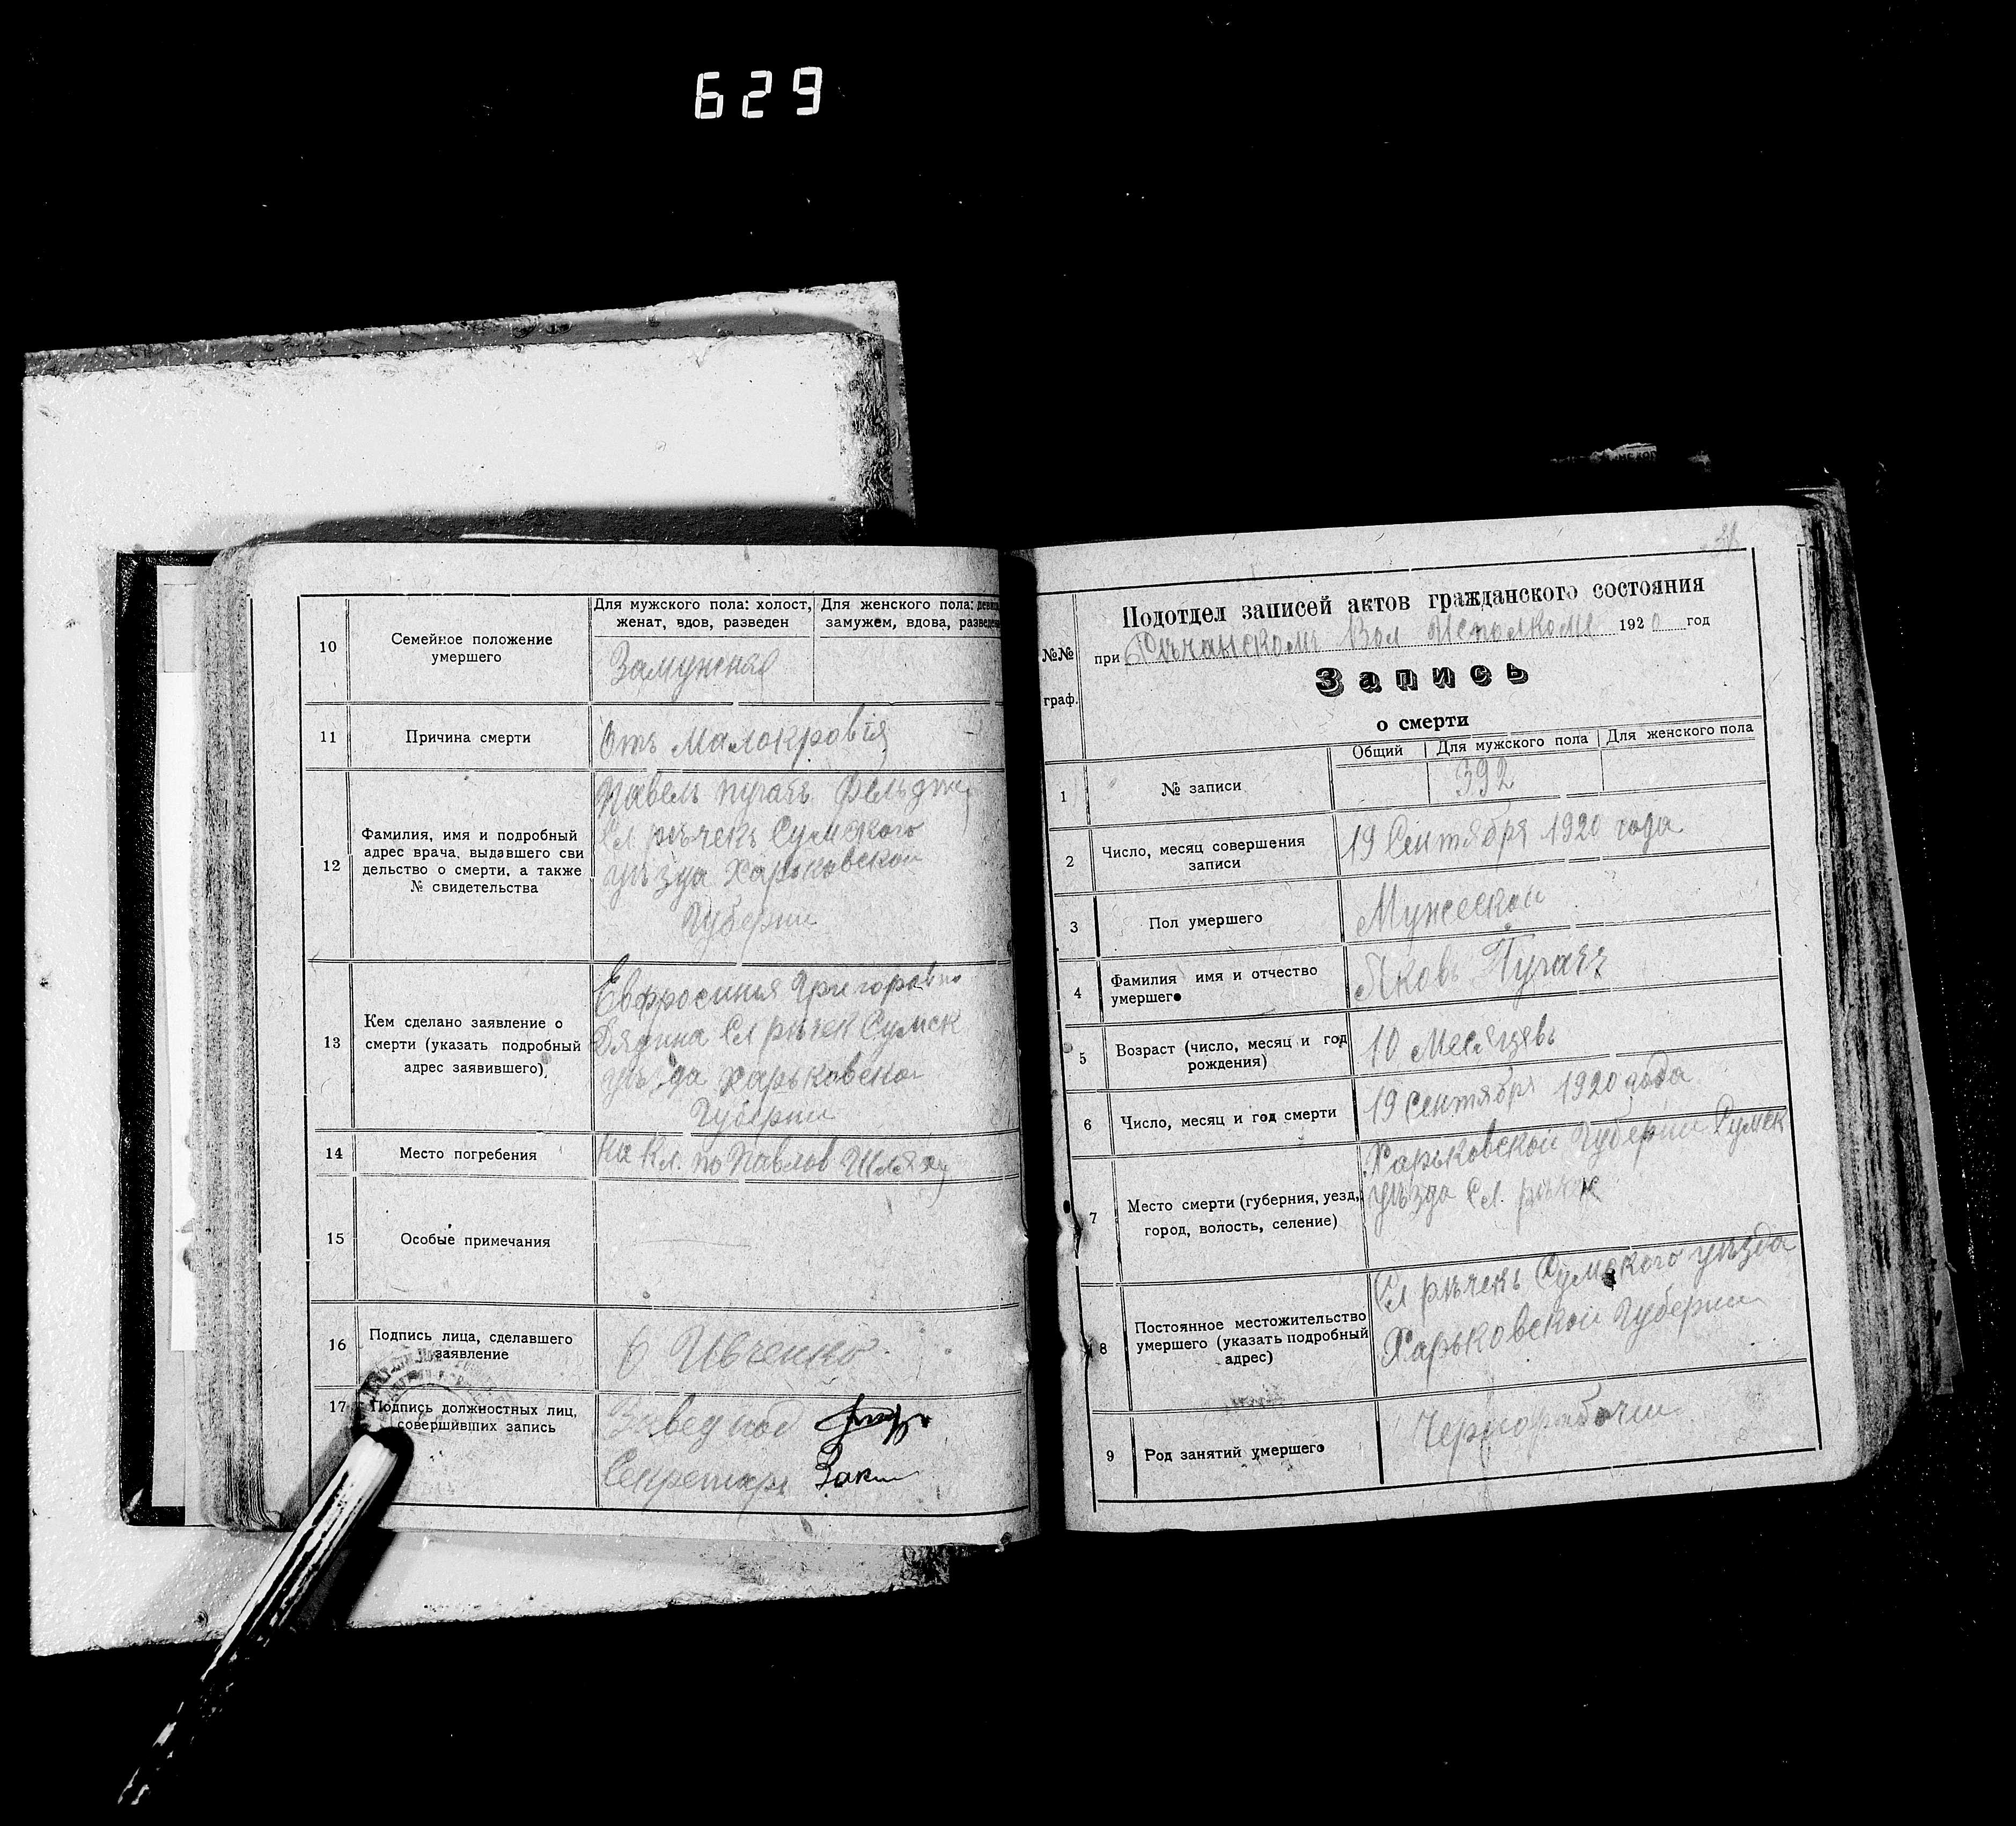 629
10
Семейное положение
умершего
Для мужского пола: холост,
женат, вдов, разведен
Для женского пола: девица
замужем, вдова, разведен
Замужная
11
Причина смерти
Отъ Малокровія
12
Фамилия, имя и подробный
адрес врача, выдавшего сви
дельство о смерти, а также
№ свидетельства
Павелъ пугачъ Фельдш
Сл. рѣчекъ Сумского
уѣзда Харьковской
Губерни
13
Кем сделано заявление о
смерти (указать подробный
адрес заявившего)
Евфросинья Григоровна
Сл рѣчек Сумск
уѣзда Харьковской
Губерни
14
Место погребения
На Кл. по Павлов Шляху
15
Особые примечания
16
Подпись лица, сделавшего
заявление
Е Ивченко
17
Подпись должностных лиц,
совершивших запись
Завед под
Секретарь
38
№№
граф.
Подотдел записей актов гражданского состояния
при Рѣчанскомъ Вол Исполкоме 1920 год
Запись
о смерти
Общий
Для мужского пола
Для женского пола
1
№ записи
392
2
Число, месяц совершения
записи
19 Сентября 1920 года
3
Пол умершего
Мужеской
4
Фамилия имя и отчество
умершего
Яковъ Пугачъ
5
Возраст (число, месяц и год
рождения)
10 месяцевъ
6
Число, месяц и год смерти
19 сентября 1920 года
7
Место смерти (губерния, уезд,
город, волость, селение)
Харьковской Губерни Сумск
уѣзда Сл. рѣчек
8
Постоянное местожительство
умершего (указать подробный
адрес)
Сл рѣчекъ Сумского уѣзда
Харьковской Губерни
9
Род занятий умершего
Чернорабочи